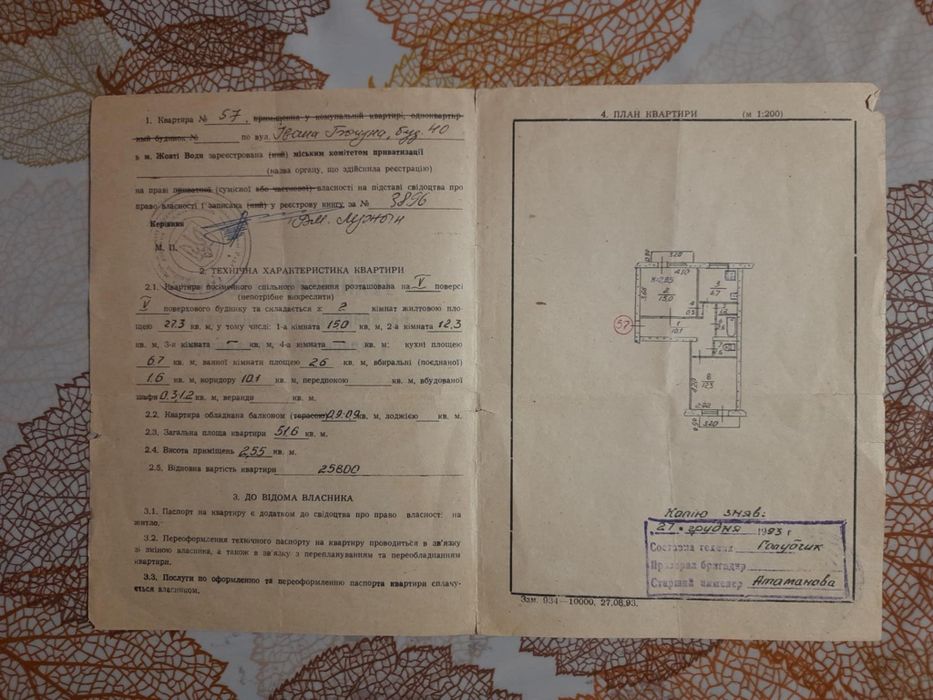 1. Квартира № 57, приміщення у комунальній квартирі, одноквартир-
ний будинок № по вул. Івана , буд. 40
в м. Жовті Води зареєстрована (ний) міським комітетом приватизації
(назва органу, що здійснила реєстрацію)
на праві приватної (сумісної або часткової) власності на підставі свідоцтва про
право власності і записана (ний) у реєстрову книгу, за № 3896
Керівник
М. П.
2. ТЕХНІЧНА ХАРАКТЕРИСТИКА КВАРТИРИ
2.1. Квартира посімейного спільного заселення розташована на V поверсі
(непотрібне викреслити)
V поверхового будинку та складається з: 2 кімнат житловою пло-
щею 27.3 кв. м, у тому числі: 1-а кімната 15.0 кв. м, 2-а кімната 12.3
кв. м, 3-я кімната — кв. м, 4-а кімната — кв. м: кухні площею
6.7 кв. м, ванної кімнати площею 2.6 кв. м, вбиральні (поєднаної)
1.6 кв. м, коридору 10.1 кв. м, передпокою кв. м, вбудованої
шафи 0.3,1.2 кв. м, веранди кв. м.
2.2. Квартира обладнана балконом (терасою) 0.9·0.9 кв. м, лоджією кв. м.
2.3. Загальна площа квартири 51.6 кв. м.
2.4. Висота приміщень 2,55 кв. м.
2.5. Відновна вартість квартири 25800
3. ДО ВІДОМА ВЛАСНИКА
3.1. Паспорт на квартиру є додатком до свідоцтва про право власност: на
житло.
3.2. Переоформлення технічного паспорту на квартиру проводиться в зв'язку
зі зміною власника, а також в зв'язку з переплануванням та переобладнанням
квартири.
3.3. Послуги по оформленню та переоформленню паспорта квартири сплачу-
ється власником.
4. ПЛАН КВАРТИРИ (м 1:200)
3.20
4.10
2
15.0
3
6.7
57
1
10.1
8
12.3
3.20
Копію зняв:
27. грудня 1993 г
Составил техник Голубчик
Проверил бригадир
Старший инженер Атаманова
Зам. 034—10000, 27.08.93.